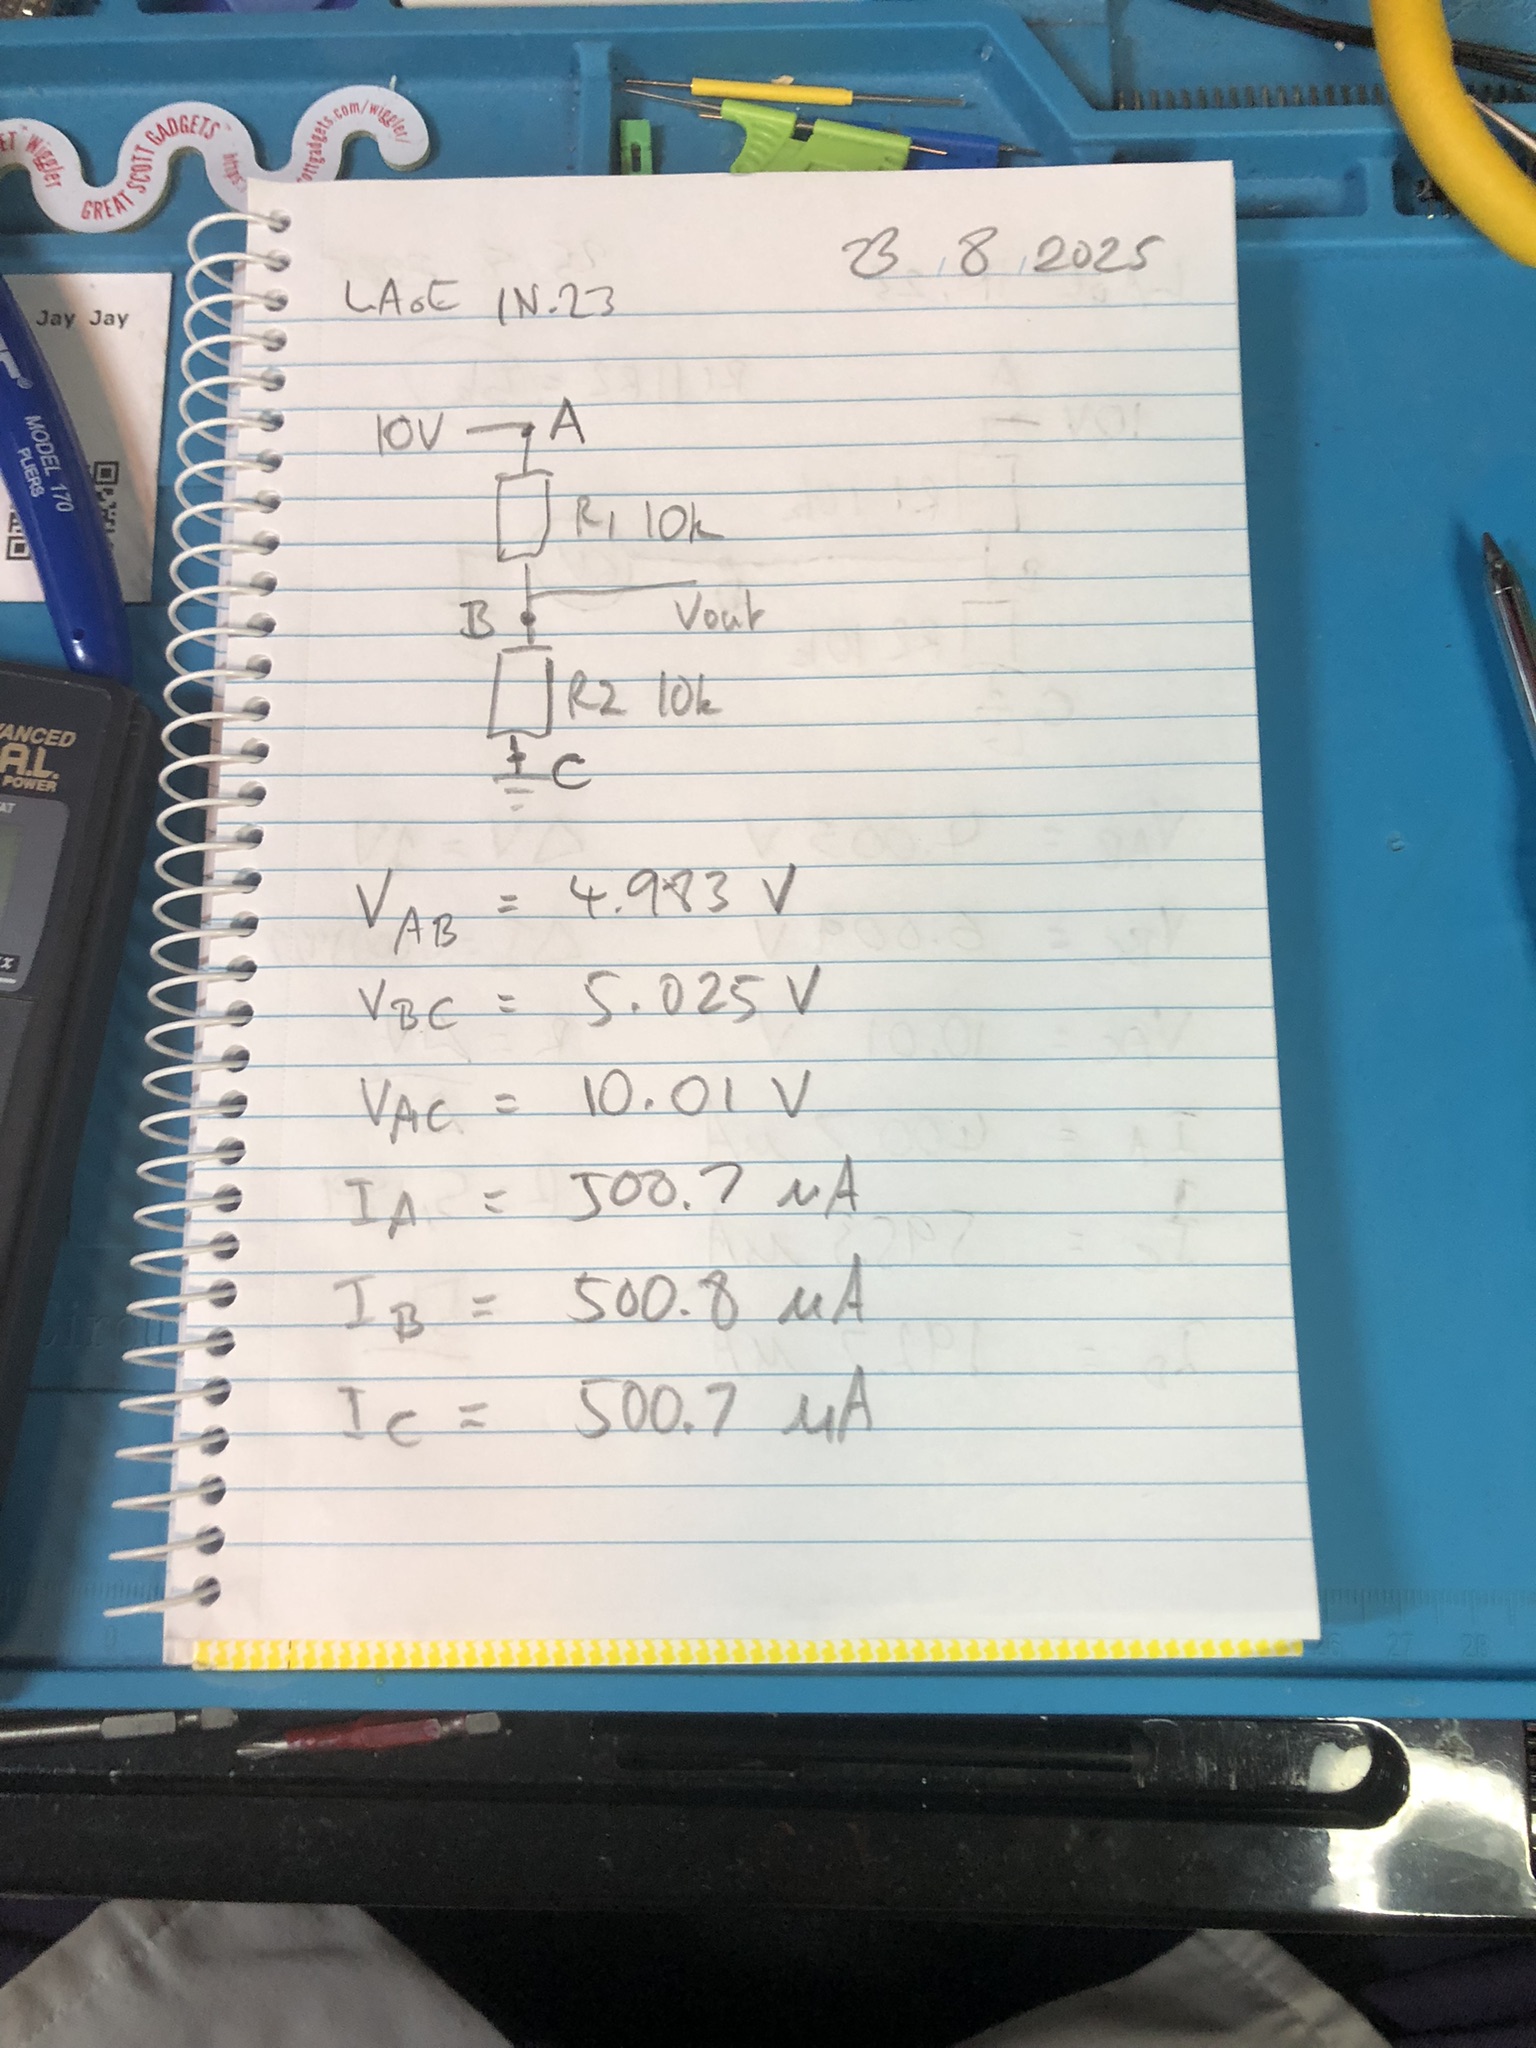 GREAT SCOTT GADGETS
wiggler
ottgadgets.com/wiggler/
https:
Jay Jay
MODEL 170
PLIERS
POWER
23.8.2025
LAoE 1N.23
10V A
R1 10k
B Vout
R2 10k
C
VAB = 4.983 V
VBC = 5.025 V
VAC = 10.01 V
IA = 500.7 μA
IB = 500.8 μA
IC = 500.7 μA
27 28